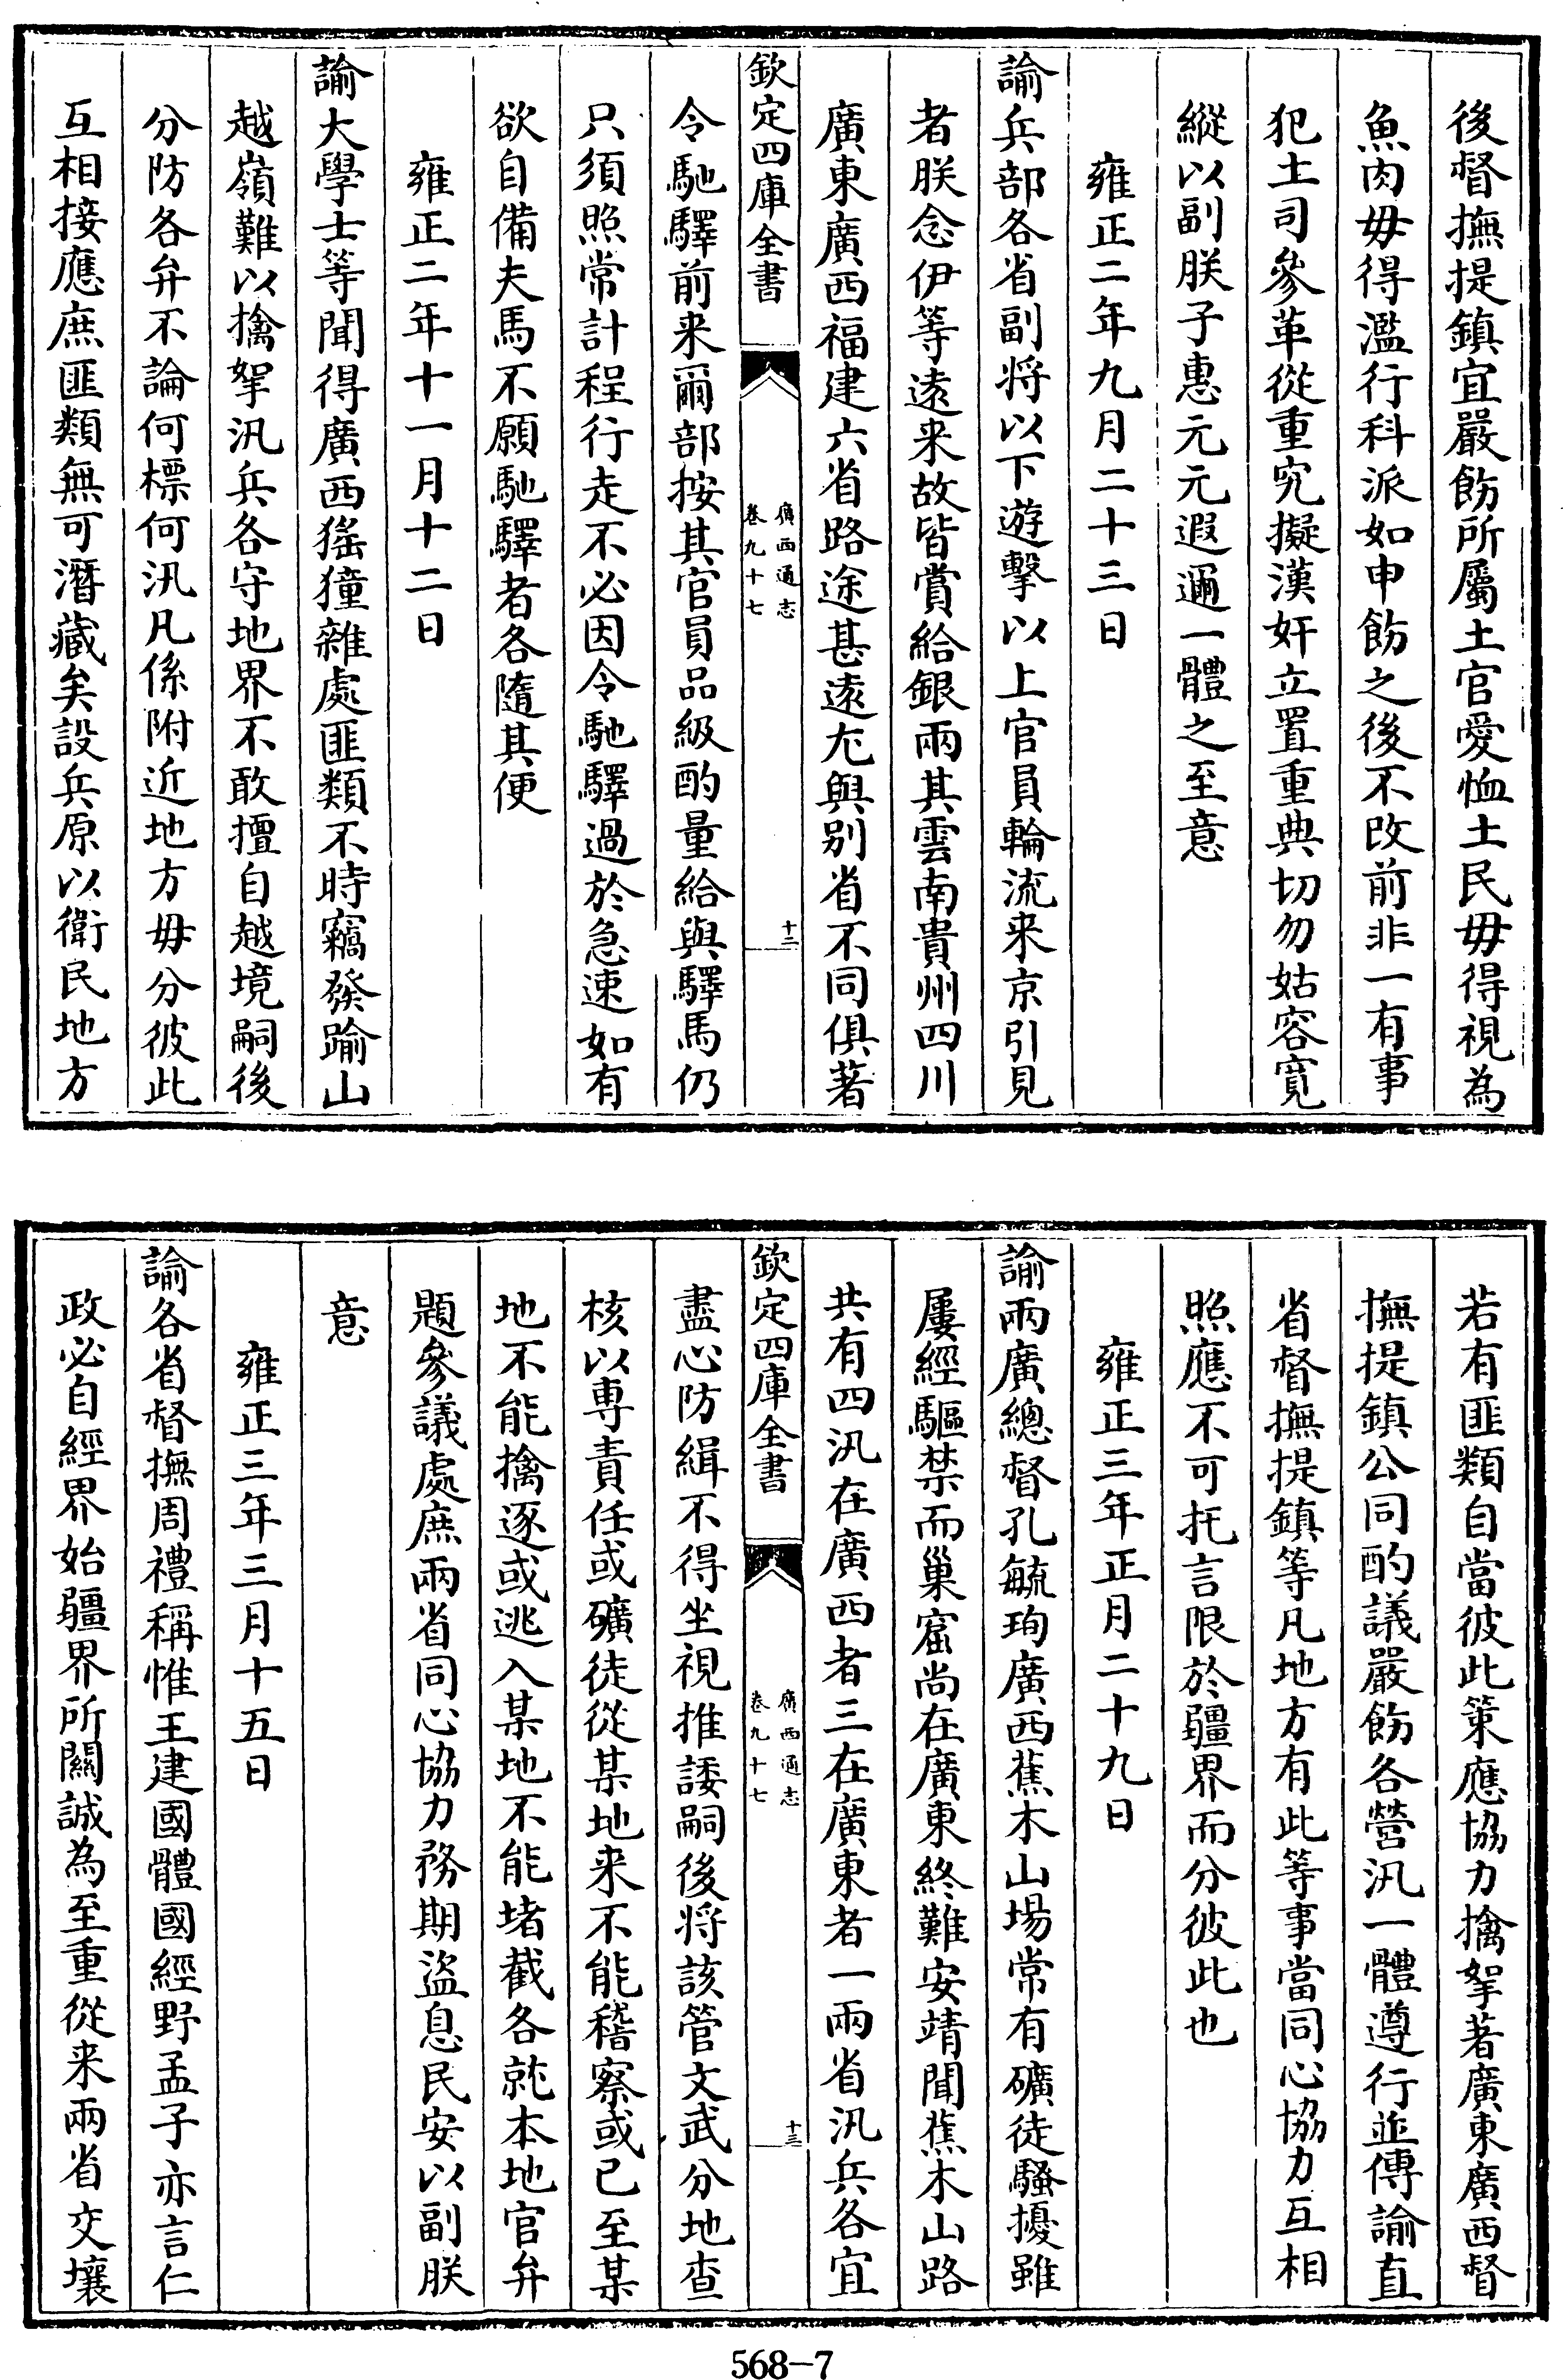 後督撫提鎮宜嚴飭所屬土官愛恤土民毋得視為
魚肉毋得濫行科派如申飭之後不改前非一有事
犯土司參革從重究擬漢奸立置重典切勿姑容寬
縱以副朕子惠元元遐邇一體之至意
雍正二年九月二十三日
諭兵部各省副将以下遊擊以上官員輪流来京引見
者朕念伊等遠来故皆賞給銀兩其雲南貴州四川
廣東廣西福建六省路途甚遠尤與别省不同俱著
欽定四庫全書
廣西通志
卷九十七
十二
令馳驛前来爾部按其官員品級酌量給與驛馬仍
只須照常計程行走不必因令馳驛過於急速如有
欲自備夫馬不願馳驛者各隨其便
雍正二年十一月十二日
諭大學士等聞得廣西猺獞雜處匪類不時竊發踰山
越嶺難以擒拏汛兵各守地界不敢擅自越境嗣後
分防各弁不論何標何汛凡係附近地方毋分彼此
互相接應庶匪類無可潛藏矣設兵原以衛民地方
若有匪類自當彼此策應協力擒拏著廣東廣西督
撫提鎮公同酌議嚴飭各營汛一體遵行並傳諭直
省督撫提鎮等凡地方有此等事當同心協力互相
照應不可托言限於疆界而分彼此也
雍正三年正月二十九日
諭兩廣總督孔毓珣廣西蕉木山場常有礦徒騷擾雖
屢經驅禁而巢窟尚在廣東終難安靖聞蕉木山路
共有四汛在廣西者三在廣東者一兩省汛兵各宜
欽定四庫全書
廣西通志
卷九十七
十三
盡心防緝不得坐視推諉嗣後将該管文武分地查
核以專責任或礦徒從某地来不能稽察或已至某
地不能擒逐或逃入某地不能堵截各就本地官弁
題參議處庶兩省同心協力務期盜息民安以副朕
意
雍正三年三月十五日
諭各省督撫周禮稱惟王建國體國經野孟子亦言仁
政必自經界始疆界所關誠為至重從来兩省交壤
568-7